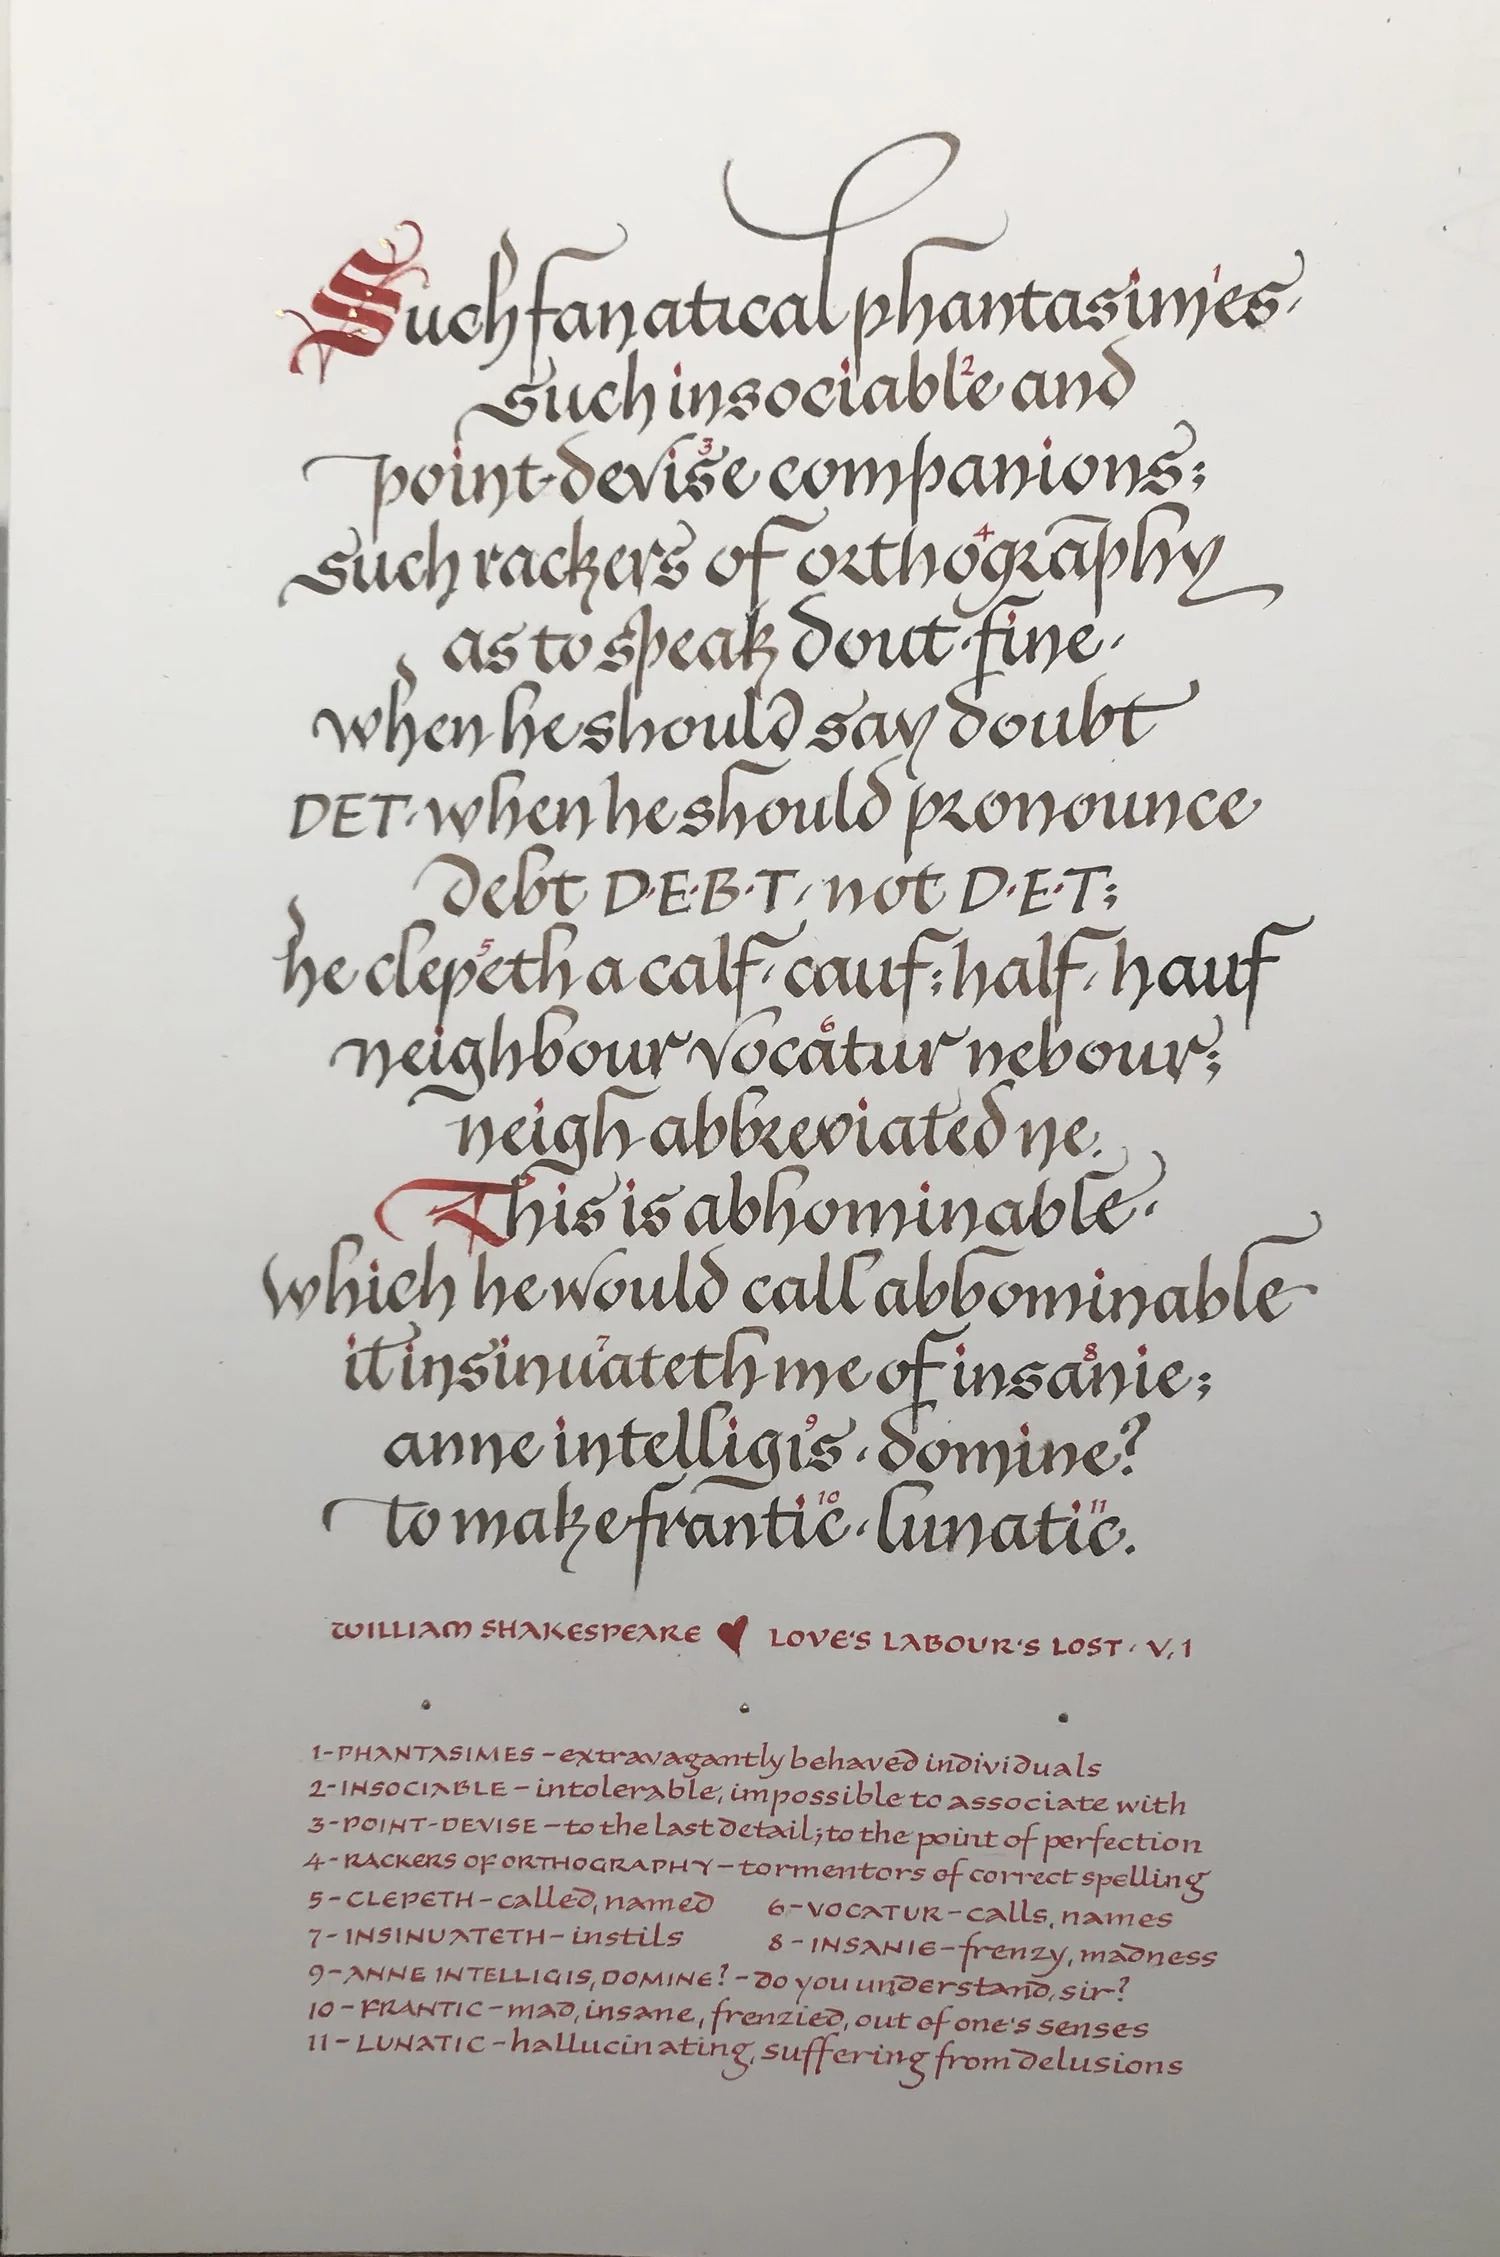 Such fanatical phantasimes¹,
such insociable² and
point-devise³ companions;
such rackers of orthography⁴
as to speak dout, fine,
when he should say doubt
DET, when he should pronounce
debt D·E·B·T, not D·E·T;
he clepeth⁵ a calf, cauf; half, hauf
neighbour vocatur⁶ nebour;
neigh abbreviated ne.
This is abhominable,
which he would call abbominable
it insinuateth⁷ me of insanie⁸;
anne intelligis⁹, domine?
to make frantic¹⁰, lunatic¹¹.
WILLIAM SHAKESPEARE ♥ LOVE'S LABOUR'S LOST, V, 1
1-PHANTASIMES – extravagantly behaved individuals
2-INSOCIABLE – intolerable, impossible to associate with
3-POINT-DEVISE – to the last detail; to the point of perfection
4-RACKERS OF ORTHOGRAPHY – tormentors of correct spelling
5-CLEPETH – called, named 6-VOCATUR – calls, names
7-INSINUATETH – instils 8-INSANIE – frenzy, madness
9-ANNE INTELLIGIS, DOMINE? – do you understand, sir?
10-FRANTIC – mad, insane, frenzied, out of one's senses
11-LUNATIC – hallucinating, suffering from delusions